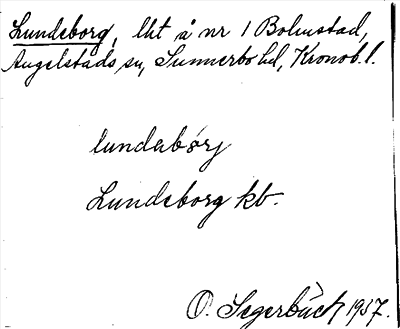 Lundeborg, lht å nr 1 Bolmstad,
Angelstads sn, Sunnerbo hd, Kronob. l.
lundabórj
Lundeborg kb.
O. Segerbäck 1937.